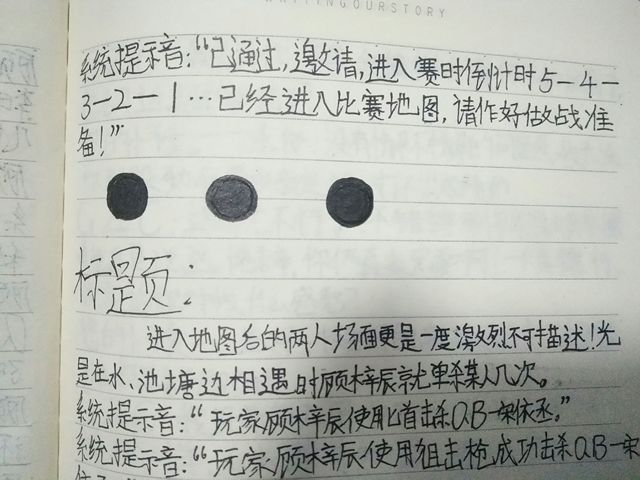 WRITINGOURSTORY
系统提示音:“已通过,邀请,进入赛时倒计时5-4-
3-2-1…已经进入比赛地图,请作好做战准
备!”
标题页:
进入地图后的两人场面更是一度激烈不可描述!光
是在水、池塘边相遇时顾梓辰就单杀某人几次。
系统提示音:“玩家顾梓辰使用匕首击杀QB一架依丞。”
系统提示音:“玩家顾梓辰使用狙击枪成功击杀QB一架